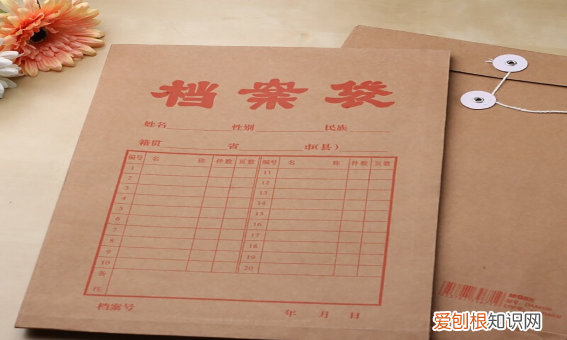 档案袋
姓名 性别 民族
籍贯 省 市(县)
编号 名 称 件数 页数 编号 名 称 件数 页数
1 11
2 12
3 13
4 14
5 15
6 16
7 17
8 18
9 19
10 20
备注
档案号 年 月 日
爱刨根知识网